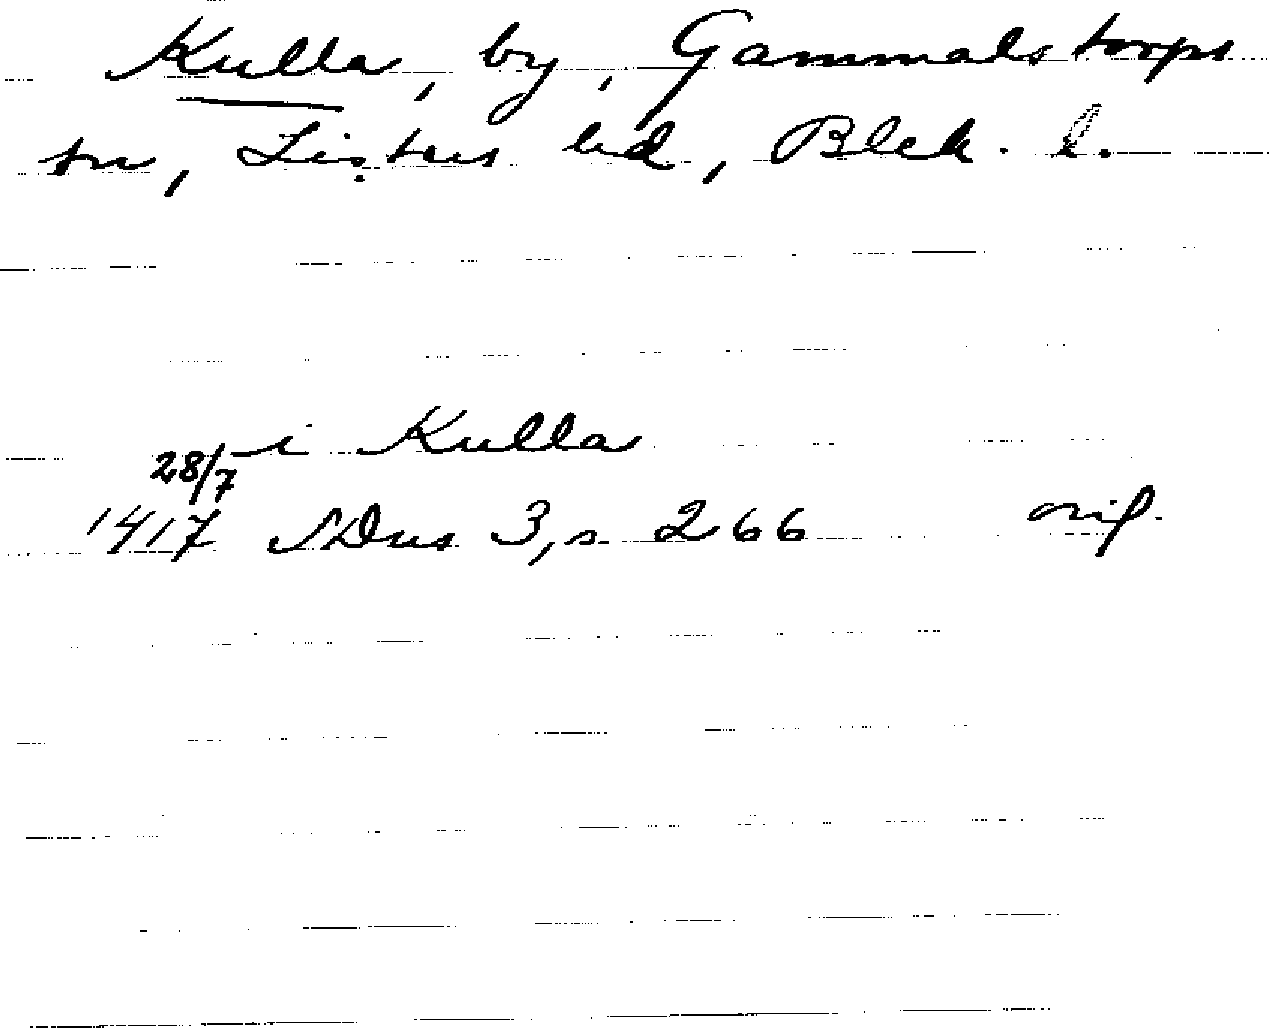 Kulla, by, Gammalstorps
sn, Listers hd, Blek. l.
i Kulla
28/7
1417 SDns 3, s. 266 orig.